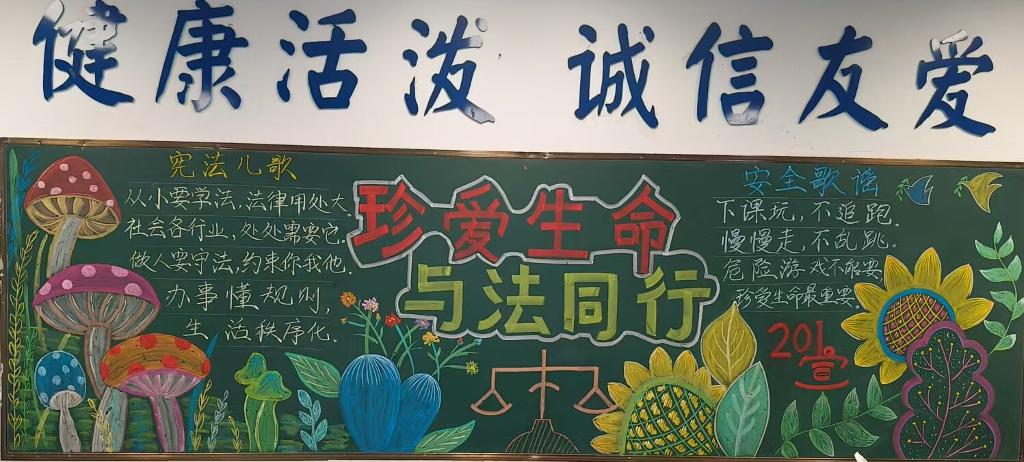 健康活泼 诚信友爱
宪法儿歌
从小要学法，法律用处大。
社会各行业，处处需要它。
做人要守法，约束你我他。
办事懂规则，
生活秩序化。
珍爱生命
与法同行
安全歌谣
下课玩，不追跑。
慢慢走，不乱跳。
危险游戏不能耍
珍爱生命最重要
201宣